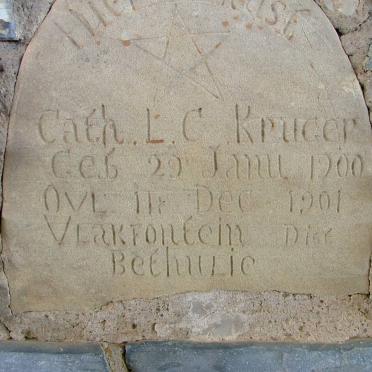 Hier Rust
Cath. L. C. Kruger
Geb 29 Janu 1900
Ovl 11 Dec 1901
Vlakfontein Dist
Bethulie